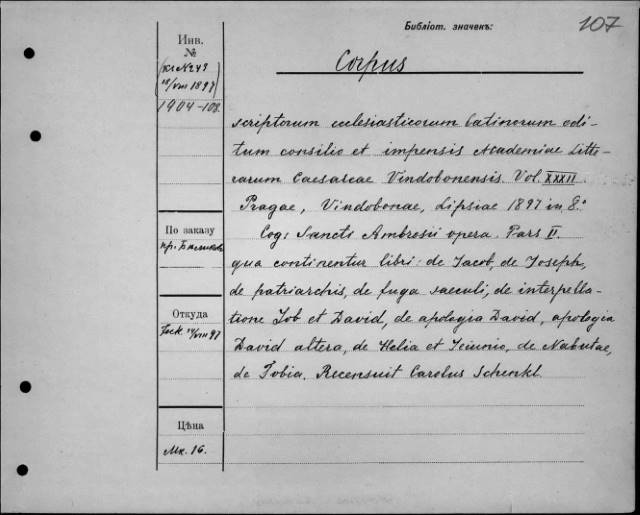 Библіот. значекъ:
107
Инв.
№
18/VIII 1897
1904-108.
Corpus
scriptorum ecclesiasticorum latinorum edi-
tum consilio et impensis Academiae Litte-
rarum Caesareae Vindobonensis. Vol. XXXII.
Pragae, Vindobonae, Lipsiae 1897 in 8.°
Cog: Sancti Ambrosii opera. Pars II.
qua continentur libri: de Jacob, de Joseph,
de patriarchis, de fuga saeculi, de interpella-
tione Iob et David, de apologia David, apologia
David altera, de Helia et Ieiunio, de Nabutae,
de Tobia. Recensuit Carolus Schenkl.
По заказу
пр.
Откуда
Цѣна
Мк. 16.